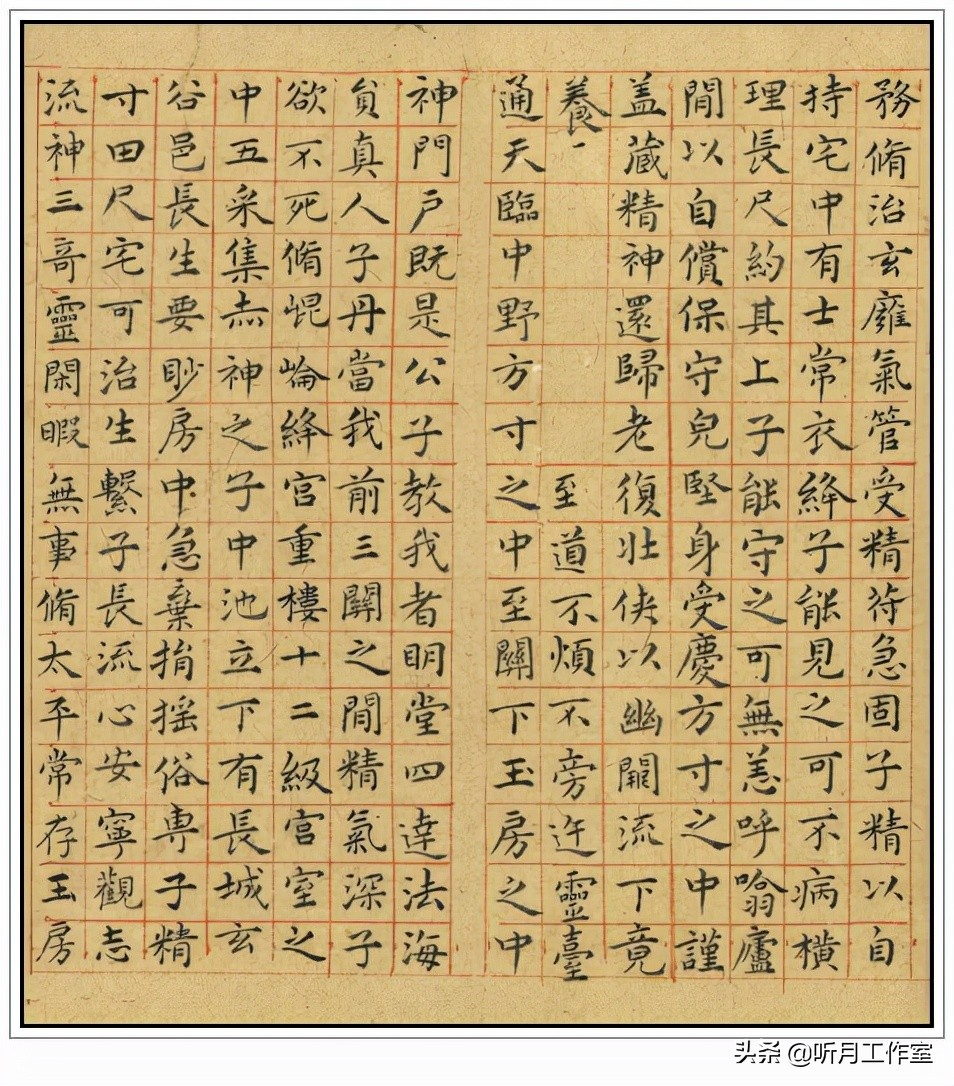 務脩治玄廱氣管受精苻急固子精以自
持宅中有士常衣絳子能見之可不病橫
理長尺約其上子能守之可無恙呼噏廬
閒以自償保守皃堅身受慶方寸之中謹
盖藏精神還歸老復壯俠以幽闕流下竟
養一 至道不煩不旁迕靈臺
通天臨中野方寸之中至關下玉房之中
神門戶既是公子教我者明堂四達法海
員真人子丹當我前三關之閒精氣深子
欲不死脩崐崘絳宮重樓十二級宮室之
中五采集赤神之子中池立下有長城玄
谷邑長生要眇房中急棄捐搖俗専子精
寸田尺宅可治生繫子長流心安寧觀志
流神三奇靈閑暇無事脩太平常存玉房
头条 @听月工作室